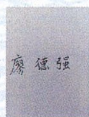 廖德强